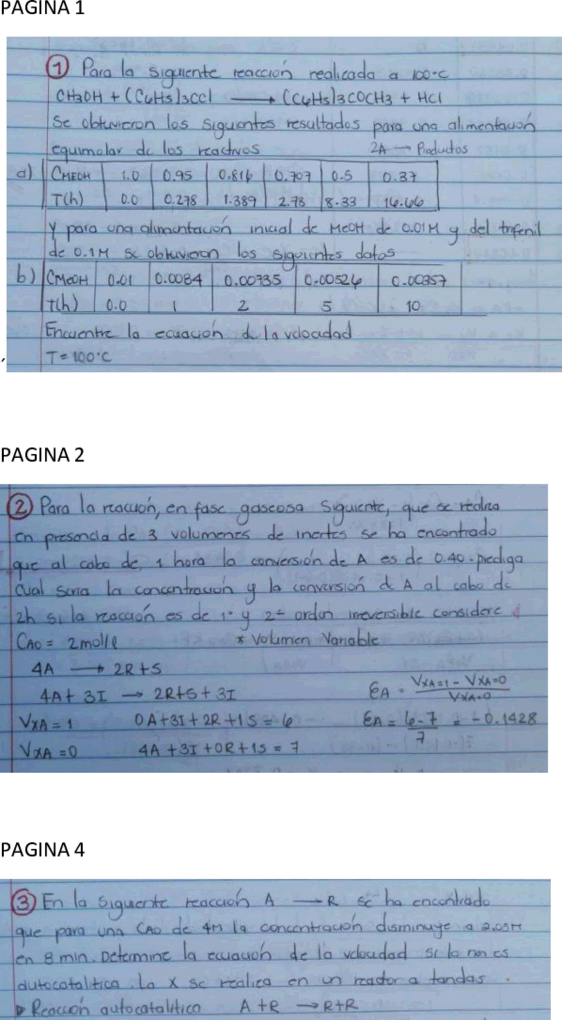 PAGINA 1
① Para la siguiente reacción realizada a 100°C
CH3OH + (C6H5)3CCl → (C6H5)3COCH3 + HCl
Se obtuvieron los siguientes resultados para una alimentación
equimolar de los reactivos 2A → Productos
a) CMEOH 1.0 0.95 0.816 0.707 0.5 0.37
T(h) 0.0 0.278 1.389 2.78 8.33 16.66
Y para una alimentación inicial de MeOH de 0.01M y del trifenil
de 0.1M se obtuvieron los siguientes datos
b) CMeOH 0.01 0.0084 0.00735 0.00526 0.00357
T(h) 0.0 1 2 5 10
Encuentre la ecuación de la velocidad
T = 100°C
PAGINA 2
② Para la reacción, en fase gaseosa siguiente, que se realiza
en presencia de 3 volumenes de inertes se ha encontrado
que al cabo de, 1 hora la conversión de A es de 0.40. prediga
Cual seria la concentración y la conversión de A al cabo de
2h si la reacción es de 1° y 2° orden irreversible considere
CAO = 2mol/l * Volumen Variable
4A → 2R+S
4A + 3I → 2R+S + 3I EA = VXA=1 - VXA=0 / VXA=0
VXA = 1 0A+3I+2R+1S = 6 EA = 6-7 / 7 = -0.1428
VXA = 0 4A+3I+0R+1S = 7
PAGINA 4
③ En la siguiente reacción A → R se ha encontrado
que para una CAO de 4M la concentración disminuye a 2.05M
en 8 min. Determine la ecuación de la velocidad si la rxn es
autocatalitica. La X se realiza en un reactor a tandas.
Reacción autocatalitica A+R → R+R